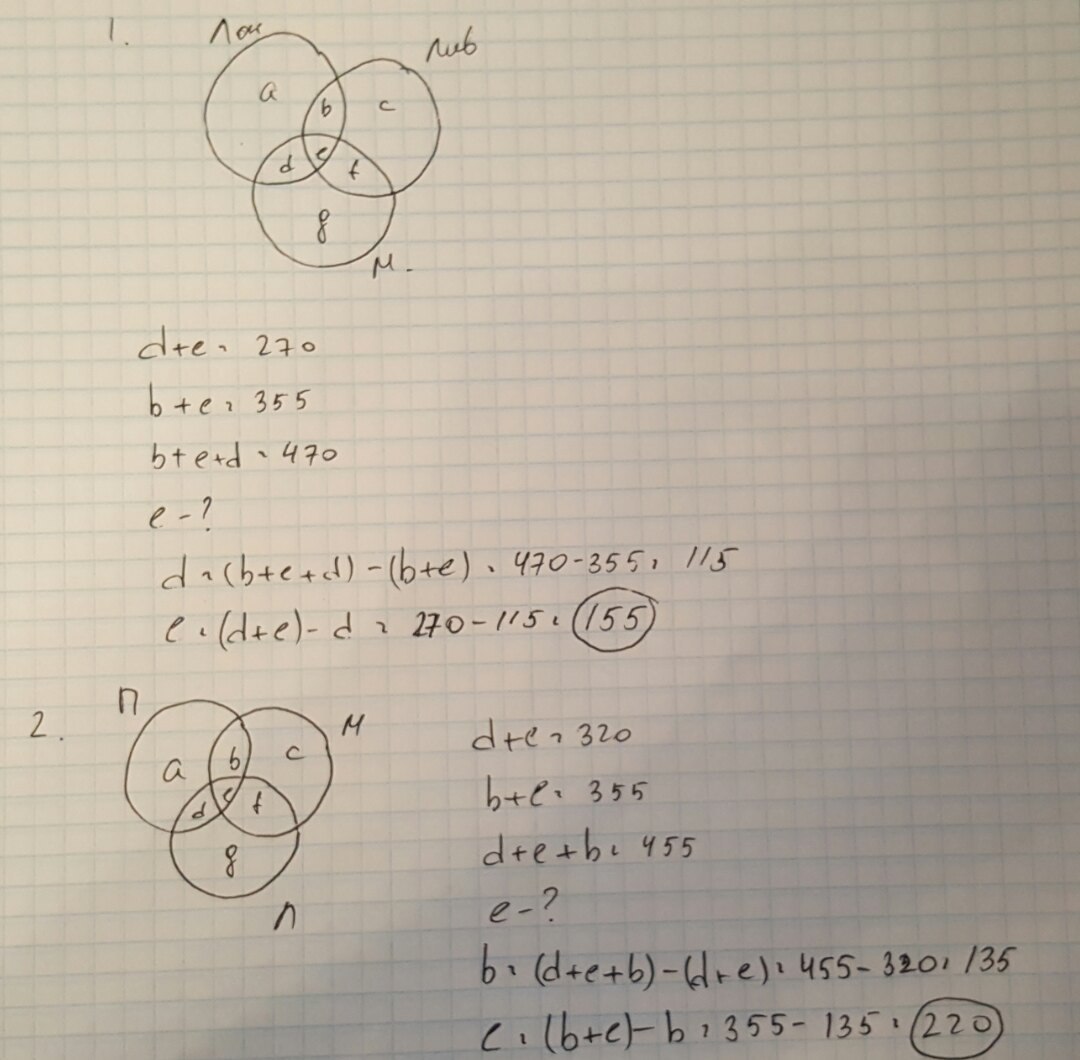 1.
Лон
Лив
a b c
d e f
g
М.
d+e = 270
b+e = 355
b+e+d = 470
e - ?
d = (b+e+d) - (b+e) = 470-355 = 115
e = (d+e) - d = 270-115 = 155
2.
П
М
a b c
d e f
g
Л
d+e = 320
b+e = 355
d+e+b = 455
e - ?
b = (d+e+b) - (d+e) = 455-320 = 135
e = (b+e) - b = 355-135 = 220